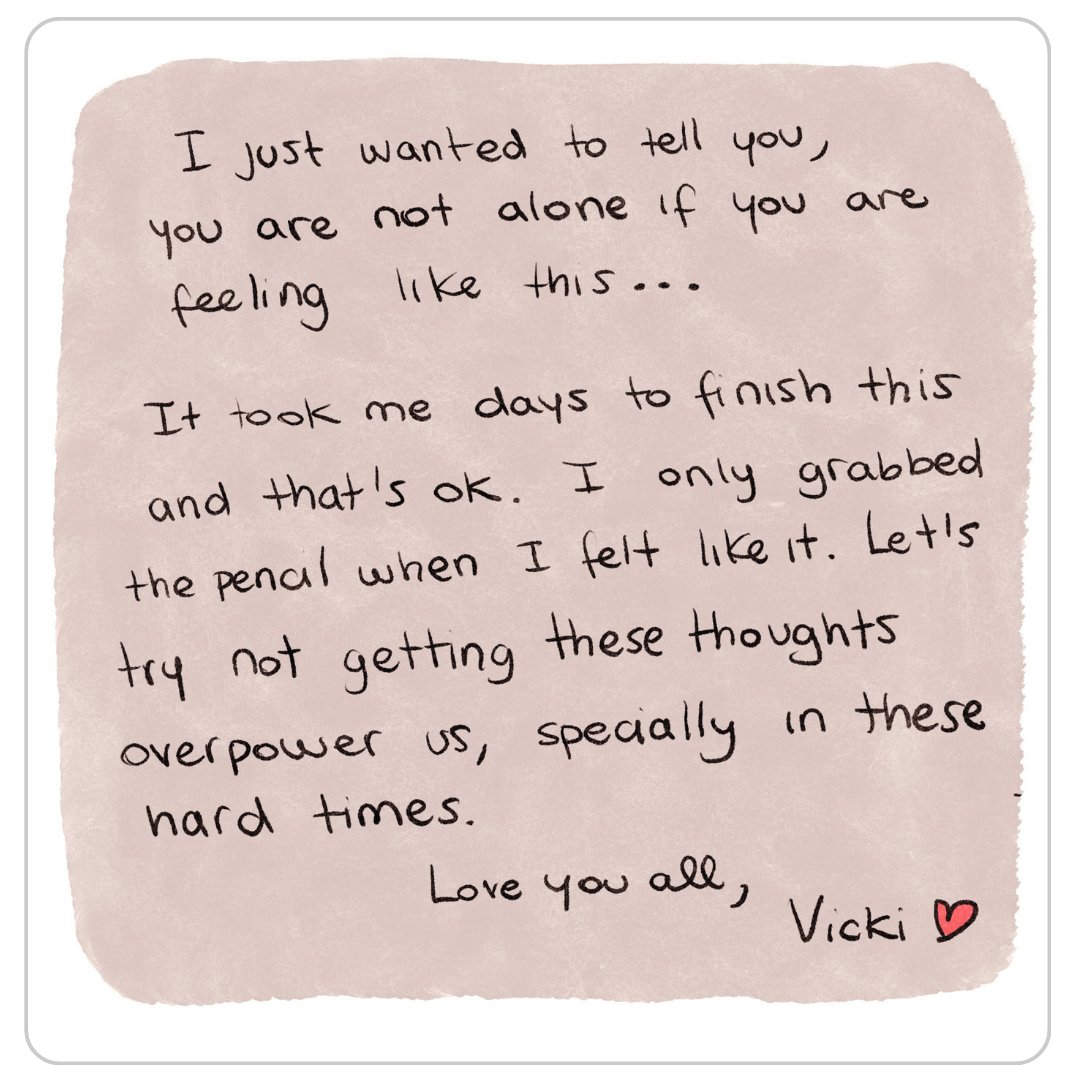 I just wanted to tell you,
you are not alone if you are
feeling like this...
It took me days to finish this
and that's ok. I only grabbed
the pencil when I felt like it. Let's
try not getting these thoughts
overpower us, specially in these
hard times.
Love you all,
Vicki